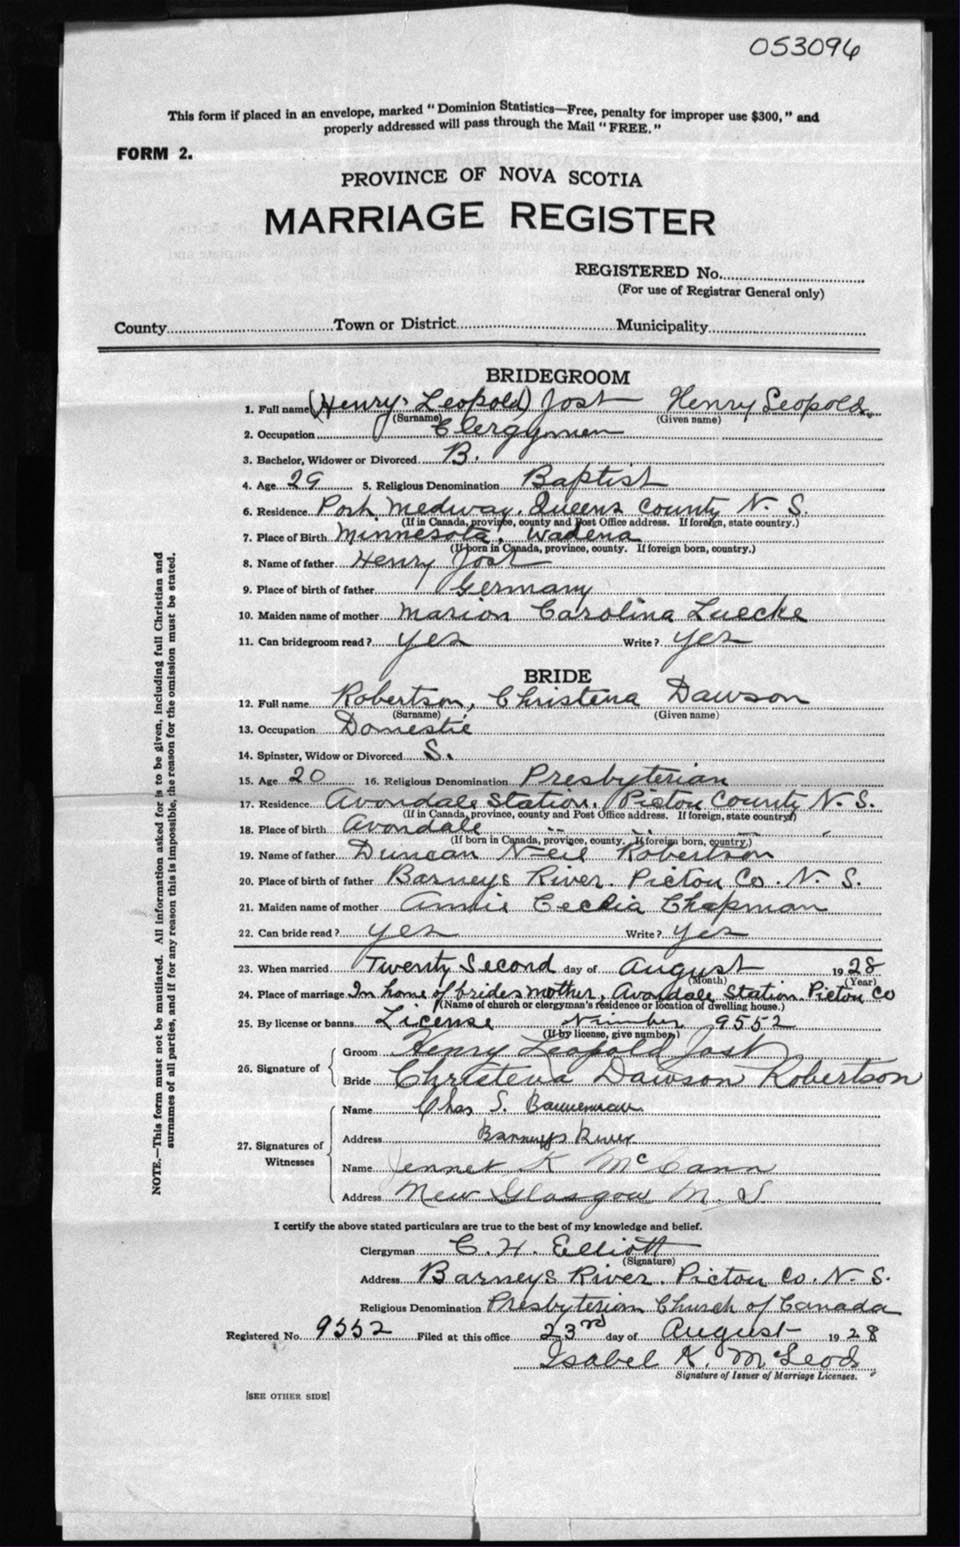 053096
This form if placed in an envelope, marked "Dominion Statistics—Free, penalty for improper use $300," and
properly addressed will pass through the Mail "FREE."
FORM 2.
PROVINCE OF NOVA SCOTIA
MARRIAGE REGISTER
REGISTERED No.
(For use of Registrar General only)
County Town or District Municipality
BRIDEGROOM
1. Full name (Henry Leopold) Jost Henry Leopold
(Surname) (Given name)
2. Occupation Clergymen
3. Bachelor, Widower or Divorced B.
4. Age 29 5. Religious Denomination Baptist
6. Residence Port Medway. Queens County N. S.
(If in Canada, province, county and Post Office address. If foreign, state country.)
7. Place of Birth Minnesota, Wadena
(If born in Canada, province, county. If foreign born, country.)
8. Name of father Henry Jost
9. Place of birth of father Germany
10. Maiden name of mother Marion Carolina Luecke
11. Can bridegroom read? yes Write? yes
BRIDE
12. Full name Robertson, Christena Dawson
(Surname) (Given name)
13. Occupation Domestic
14. Spinster, Widow or Divorced S.
15. Age 20 16. Religious Denomination Presbyterian
17. Residence Avondale Station. Pictou County N. S.
(If in Canada, province, county and Post Office address. If foreign, state country)
18. Place of birth Avondale " " "
(If born in Canada, province, county. If foreign born, country.)
19. Name of father Duncan Neil Robertson
20. Place of birth of father Barneys River. Pictou Co. N. S.
21. Maiden name of mother Annie Cecelia Chapman
22. Can bride read? yes Write? yes
23. When married Twenty Second day of August 1928
(Month) (Year)
24. Place of marriage In home of brides mother, Avondale Station. Pictou Co
(Name of church or clergyman's residence or location of dwelling house.)
25. By license or banns License Number 9552
(If by license, give number)
26. Signature of
Groom Henry Leopold Jost
Bride Christena Dawson Robertson
27. Signatures of Witnesses
Name Chas S. Bannerman
Address Barneys River
Name Jennet K McCann
Address New Glasgow N. S
I certify the above stated particulars are true to the best of my knowledge and belief.
Clergyman C. H. Elliott
(Signature)
Address Barneys River. Pictou Co. N. S.
Religious Denomination Presbyterian Church of Canada
Registered No. 9552 Filed at this office 23rd day of August 1928
Isabel K. McLeod
Signature of Issuer of Marriage Licenses.
[SEE OTHER SIDE]
NOTE.—This form must not be mutilated. All information asked for is to be given, including full Christian and
surnames of all parties, and if for any reason this is impossible, the reason for the omission must be stated.